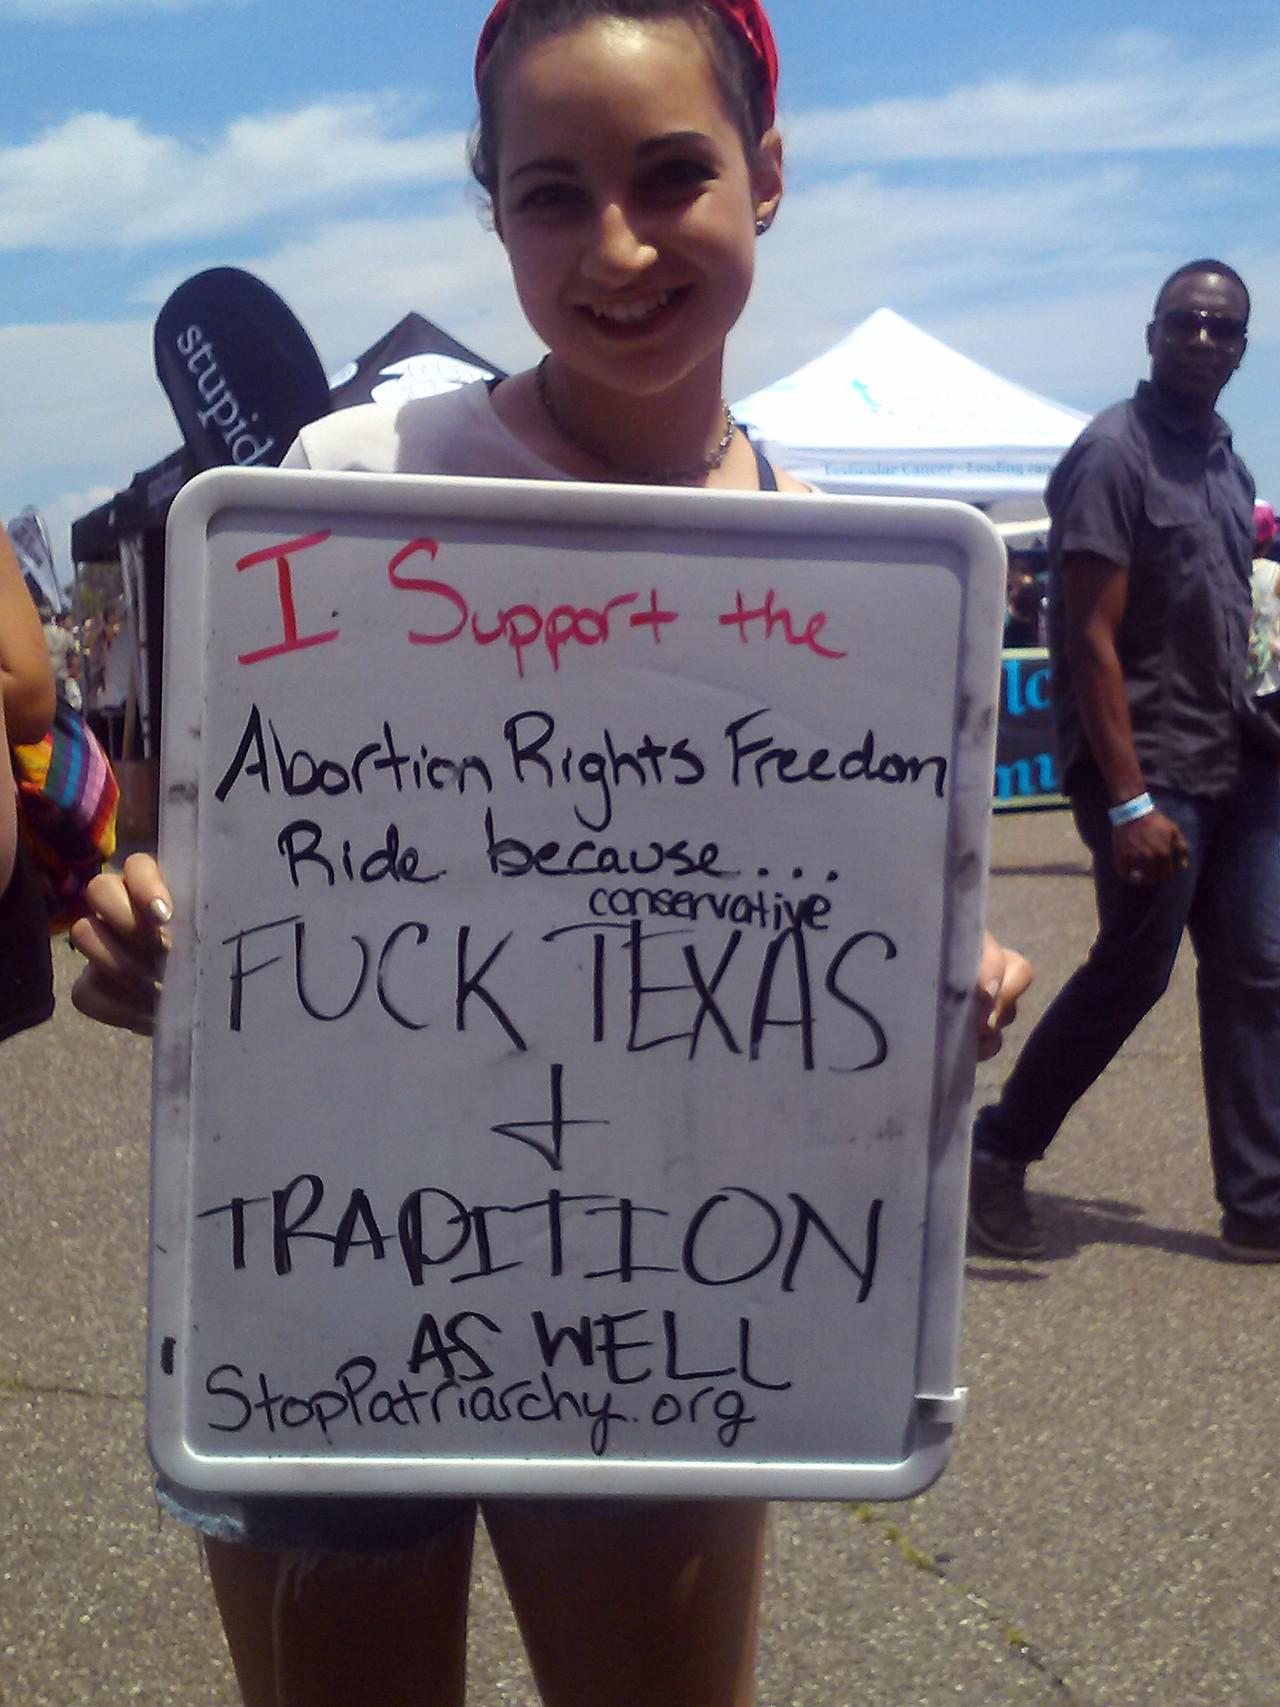 stupid
Testicular Cancer - Leading
I Support the
Abortion Rights Freedom
Ride because...
conservative
FUCK TEXAS
+
TRADITION
AS WELL
StopPatriarchy.org